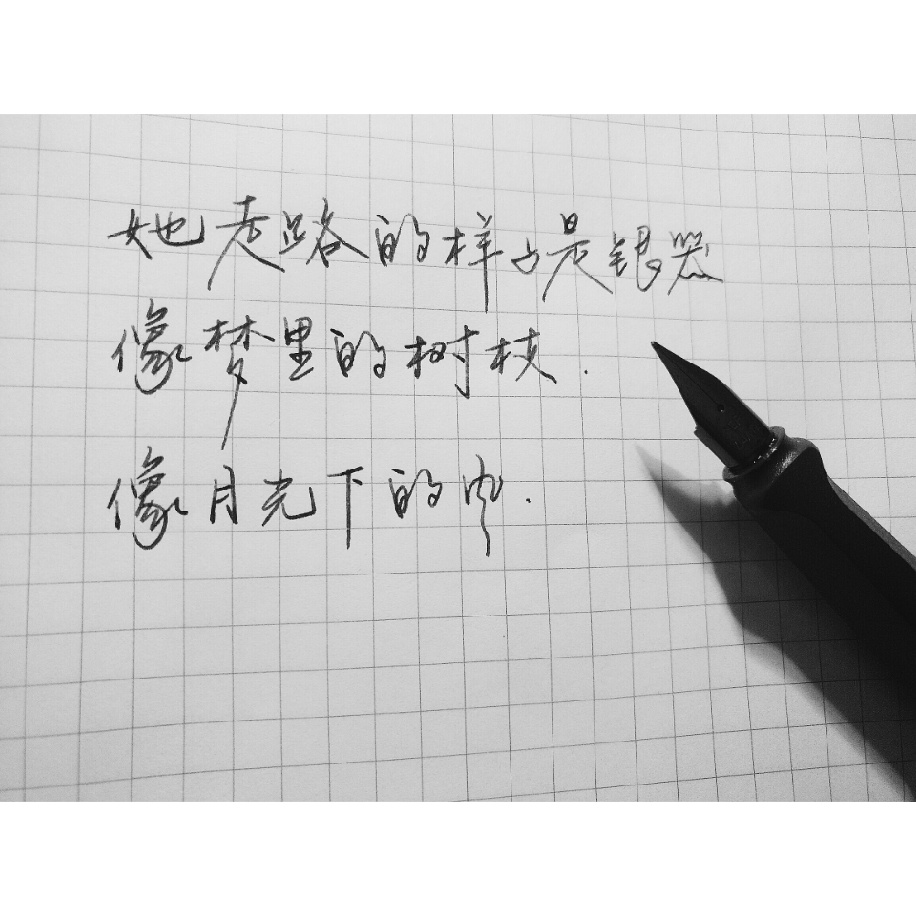 她走路的样子是银器
像梦里的树枝.
像月光下的